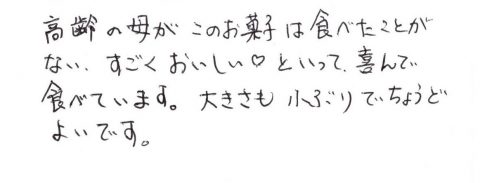 高齢の母がこのお菓子は食べたことが
ない、すごくおいしい♡といって、喜んで
食べています。大きさも小ぶりでちょうど
よいです。